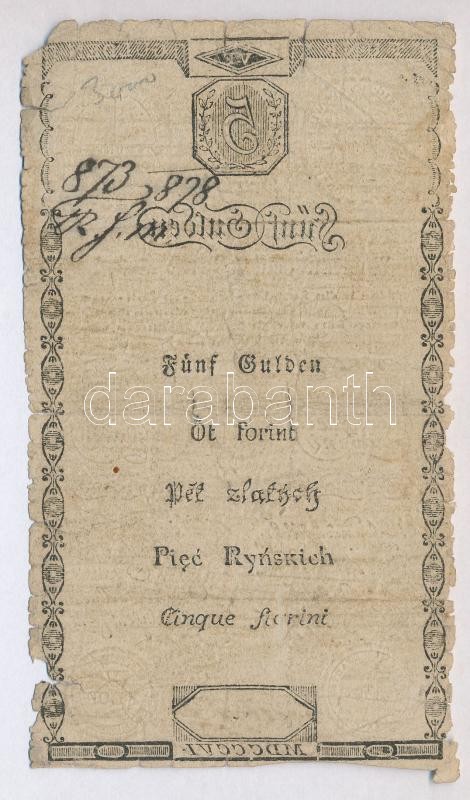 5
873 878
Fünf Gulden
Fünf Gulden
Öt Forint
darabanth
Pět zlatých
Pięć Ryńskich
Cinque fiorini
MDCCCVI